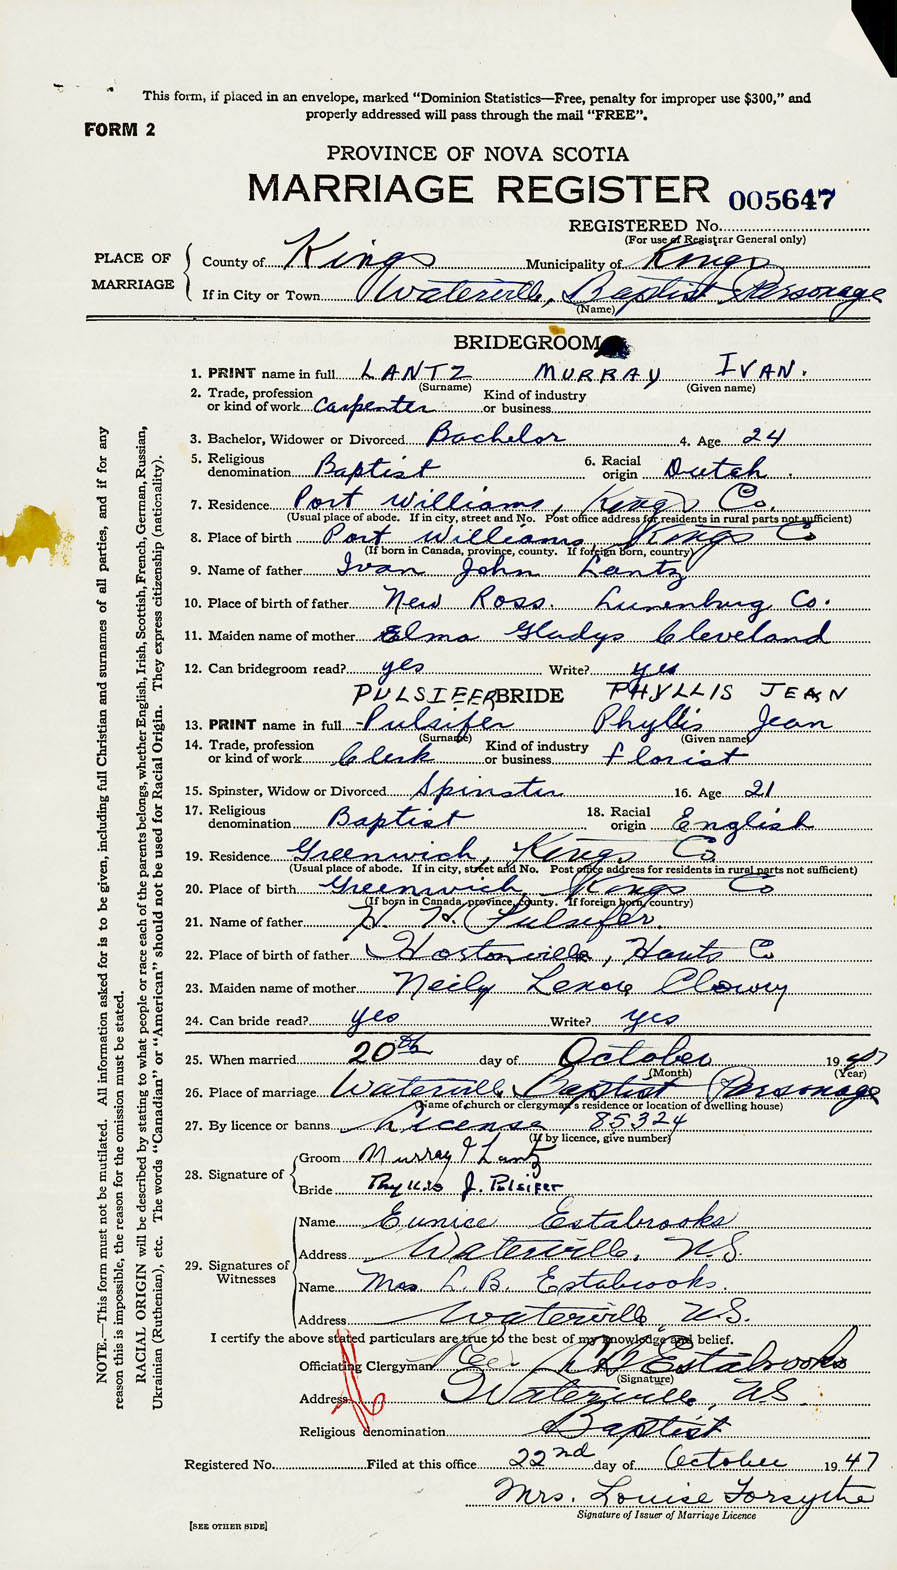 This form, if placed in an envelope, marked "Dominion Statistics—Free, penalty for improper use $300," and
properly addressed will pass through the mail "FREE".
FORM 2
PROVINCE OF NOVA SCOTIA
MARRIAGE REGISTER 005647
REGISTERED No.
(For use of Registrar General only)
PLACE OF MARRIAGE
County of Kings Municipality of Kings
If in City or Town Waterville, Baptist Parsonage
(Name)
BRIDEGROOM
1. PRINT name in full LANTZ MURRAY IVAN.
(Surname) (Given name)
2. Trade, profession or kind of work Carpenter Kind of industry or business
3. Bachelor, Widower or Divorced Bachelor 4. Age 24
5. Religious denomination Baptist 6. Racial origin Dutch.
7. Residence Port Williams, Kings Co.
(Usual place of abode. If in city, street and No. Post office address for residents in rural parts not sufficient)
8. Place of birth Port Williams, Kings Co
(If born in Canada, province, county. If foreign born, country)
9. Name of father Ivan John Lantz
10. Place of birth of father New Ross. Lunenburg Co.
11. Maiden name of mother Elma Gladys Cleveland
12. Can bridegroom read? yes Write? yes
PULSIFER BRIDE PHYLLIS JEAN
13. PRINT name in full Pulsifer Phyllis Jean
(Surname) (Given name)
14. Trade, profession or kind of work Clerk Kind of industry or business florist
15. Spinster, Widow or Divorced Spinster 16. Age 21
17. Religious denomination Baptist 18. Racial origin English
19. Residence Greenwich, Kings Co
(Usual place of abode. If in city, street and No. Post office address for residents in rural parts not sufficient)
20. Place of birth Greenwich Kings Co
(If born in Canada, province, county. If foreign born, country)
21. Name of father H. H. Pulsifer.
22. Place of birth of father Hortonville, Hants Co
23. Maiden name of mother Neily Lenore Clowry
24. Can bride read? yes Write? yes
25. When married 20th day of October 1947
(Month) (Year)
26. Place of marriage Waterville Baptist Parsonage
(Name of church or clergyman's residence or location of dwelling house)
27. By licence or banns License 85324
(If by licence, give number)
28. Signature of
Groom Murray I Lantz
Bride Phyllis J. Pulsifer
29. Signatures of Witnesses
Name Eunice Estabrooks
Address Waterville, N.S.
Name Mrs L. B. Estabrooks.
Address Waterville, N.S.
I certify the above stated particulars are true to the best of my knowledge and belief.
Officiating Clergyman Estabrooks
(Signature)
Address Waterville, NS
Religious denomination Baptist
Registered No. Filed at this office 22nd day of October 1947
Mrs. Louise Forsythe
Signature of Issuer of Marriage Licence
[SEE OTHER SIDE]
NOTE.—This form must not be mutilated. All information asked for is to be given, including full Christian and surnames of all parties, and if for any
reason this is impossible, the reason for the omission must be stated.
RACIAL ORIGIN will be described by stating to what people or race each of the parents belongs, whether English, Irish, Scottish, French, German, Russian,
Ukrainian (Ruthenian), etc. The words "Canadian" or "American" should not be used for Racial Origin. They express citizenship (nationality).